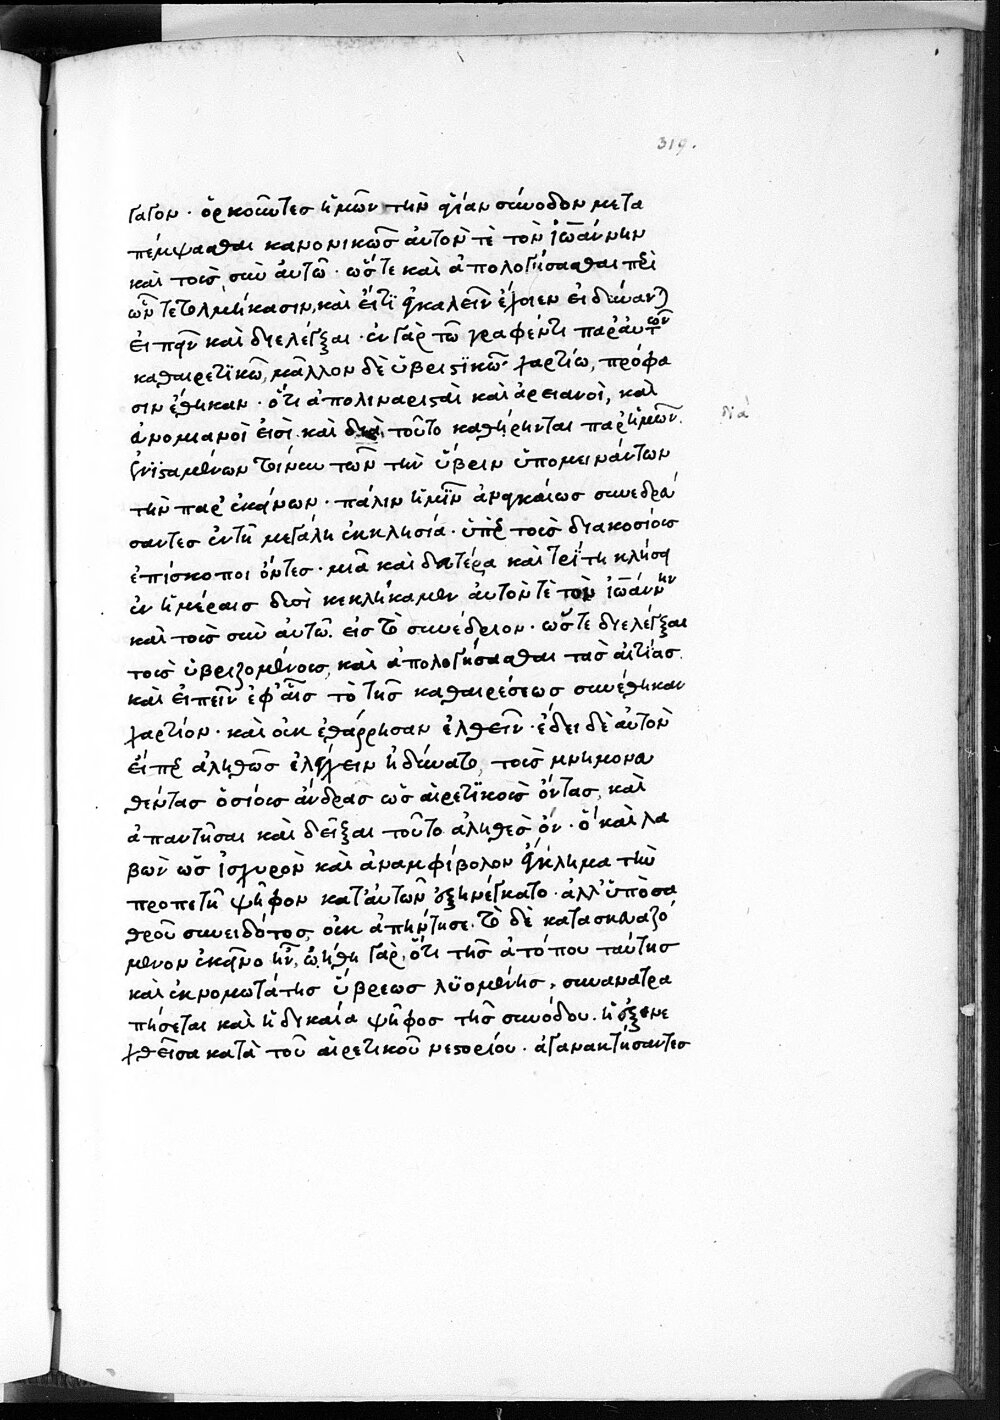 319.
γαγον · ὁρκοῦντες ἡμῶν τὴν ἁγίαν σύνοδον μετα
πέμψασθαι κανονικῶς αὐτόν τὲ τὸν ἰωάννην
καὶ τοὺς σὺν αὐτῶ · ὥστε καὶ ἀπολογήσασθαι περὶ
ὧν τετολμήκασιν, καὶ εἴ τι ἐγκαλεῖν ἔχοιεν εἰ δύναντ(αι)
εἰπεῖν καὶ διελέγξαι · ἐν γὰρ τῶ γραφέντι παρ' αὐτῶν
καθαιρετικῶ, μᾶλλον δὲ ὑβριστικῶ χαρτίω, πρόφα
σιν ἔθηκαν · ὅτι ἀπολιναρισταὶ καὶ ἀρειανοὶ, καὶ
ἀνομιανοὶ εἰσὶ καὶ διὰ τοῦτο καθήρηνται παρ' ἡμῶν.
διὰ
ἐνισταμένων τοίνυν τῶν τὴν ὕβριν ὑπομεινάντων
τὴν παρ' ἐκείνων · πάλιν ἡμῖν ἀναγκαίως συνεδρεύ
σαντες ἐν τῆ μεγάλη ἐκκλησία · ὑπὲρ τοὺς διακοσίους
ἐπίσκοποι ὄντες · μιᾶ καὶ δευτέρα καὶ τρίτη κλήσει
ἐν ἡμέραις δυσὶ κεκλήκαμεν αὐτόν τὲ τὸν ἰωάννην
καὶ τοὺς σὺν αὐτῶ. εἰς τὸ συνέδριον · ὥστε διελέγξαι
τοὺς ὑβριζομένους, καὶ ἀπολογήσασθαι τὰς αἰτίας.
καὶ εἰπεῖν ἐφ' αἷς τὸ τῆς καθαιρέσεως συνέθηκαν
χαρτίον · καὶ οὐκ ἐθάρρησαν ἐλθεῖν · ἔδει δὲ αὐτὸν
εἴπερ ἀληθῶς ἐλέγχειν ἠδύνατο, τοὺς μνημονευ
θέντας ὁσίους ἄνδρας ὡς αἱρετικοὺς ὄντας, καὶ
ἀπαντῆσαι καὶ δεῖξαι τοῦτο ἀληθὲς ὄν · ὃ καὶ λα
βὼν ὡς ἰσχυρὸν καὶ ἀναμφίβολον ἔγκλημα τὴν
προπετῆ ψῆφον κατ' αὐτῶν ἐξηνέγκατο · ἀλλ' ὑπὸ σα
θροῦ συνειδότος, οὐκ ἀπήντησε. τὸ δὲ κατασκευαζό
μενον ἐκεῖνο ἦν, ὠήθη γὰρ, ὅτι τῆς ἀτόπου ταύτης
καὶ ἐκνομωτάτης ὕβρεως λυομένης, συνανατρα
πήσεται καὶ ἡ δικαία ψῆφος τῆς συνόδου. ἡ ἐξενε
χθεῖσα κατὰ τοῦ αἱρετικοῦ νεστορίου · ἀγανακτήσαντες